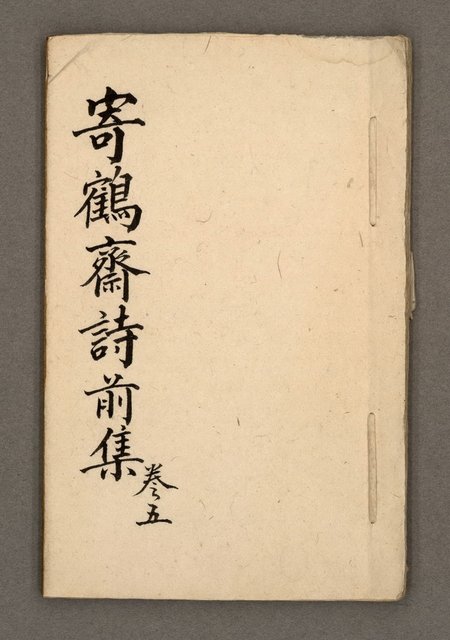 寄鶴齋詩前集
卷五